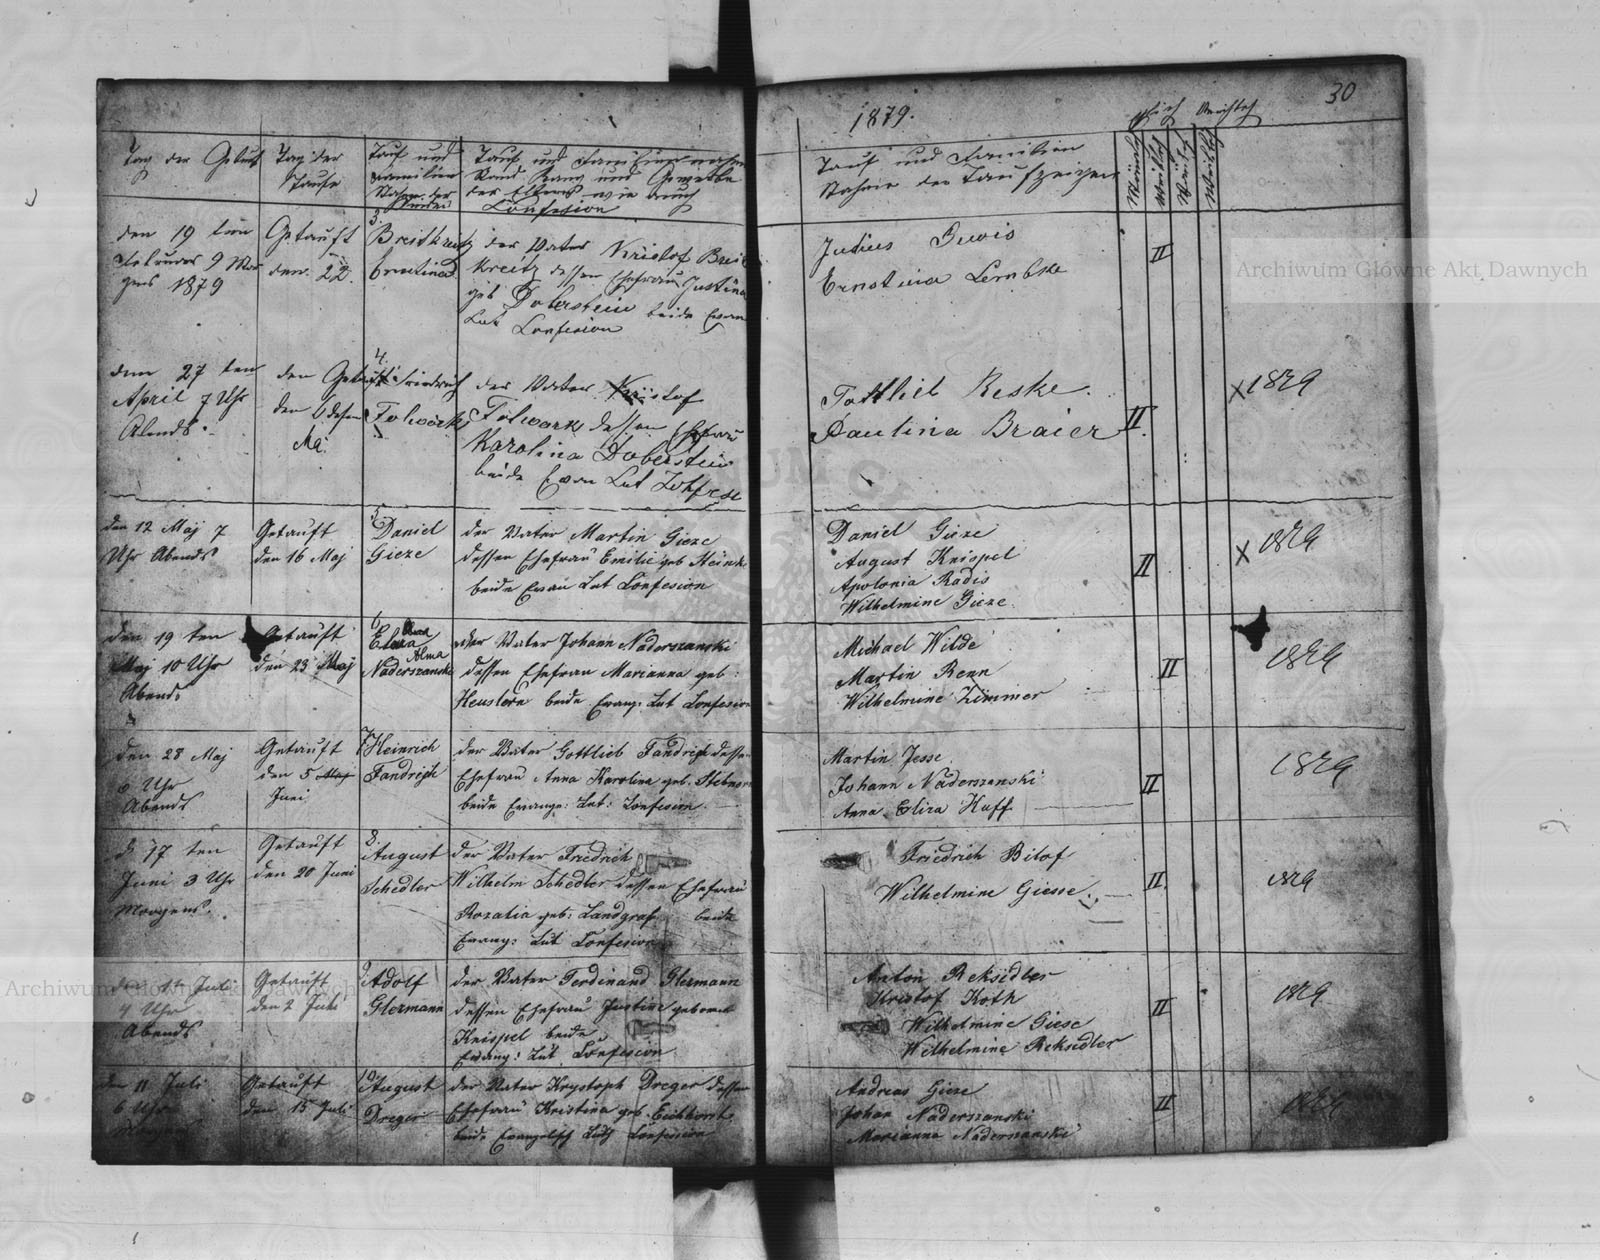 30
1879.
Tag der Geburt
Tag der
Taufe
Tauf und
Familien
Nahme der
Kinder
Tauf und Familien nahm
Stand Rang und Gewerbe
der Eltern wie auch
Confesion
Tauf und Familien
Nahme der Taufzeugen
den 19 ten
Februar 9 Mor
gens 1879
Getauft
den 22.
3.
Breitkreitz
Ernstina
der Vater Kristof Breit
kreitz dessen Ehefrau Justina
geb Doberstein beide Evan
Lut Confesion
Julius
Ernstina Lembke
II
den 27 ten
April 7 Uhr
Abends.
den Getauft
den 6
Mai
4.
Friedrich
Folwark
der Vater Kristof
Folwark dessen Ehefrau
Karolina Doberstein
beide Evan Lut
Gottlieb Reske.
Paulina Braier
II.
X 1829
den 12 Maj 7
Uhr Abends
Getauft
den 16 Maj
5
Daniel
Gieze
der Vater Martin Gieze
dessen Ehefrau Emilie geb Heinke
beide Evan Lut Confesion
Daniel Gieze
August Knispel
Apolonia Radis
Wilhelmine Gieze.
II
X 1829
den 19 ten
Maj 10 Uhr
Abends
Getauft
den 23 Maj
6
Alma
Naderszanski
der Vater Johann Naderszanski
dessen Ehefrau Marianna geb:
Heustern beide Evang: Lut Confesion
Michael Wilde
Martin Renn
Wilhelmine Zimmer
II
1829
den 28 Maj
6 Uhr
Abends
Getauft
den 5 Maj
Juni
7
Heinrich
Fandrich
der Vater Gottlieb Fandrich dessen
Ehefrau Anna Karolina geb.
beide Evange: Lut: Confesion.
Martin Jesse.
Johann Naderszanski
Anna Eliza Huff
II
1829
d. 17 ten
Juni 3 Uhr
Morgens.
Getauft
den 20 Juni
8.
August
Schedler
der Vater Friedrich
Wilhelm Schedler dessen Ehefrau
Rozalia geb: Landgraf beide
Evang: Lut Confesion
Friedrich Bitof
Wilhelmine Giesse.
II.
1829
Juli
Uhr
Abends
Getauft
den 2 Juli
9.
Adolf
Glermann
der Vater Ferdinand Glermann
dessen Ehefrau Justine geboren
Knispel beide
Evang: Lut Confesion
Anton Reksidler
Kristof Koth
Wilhelmine Giese
Wilhelmine Reksidler
II
1829
den 11 Juli
6 Uhr
Getauft
den 15 Juli
10
August
Dreger
der Vater Krystoph Dreger dessen
Ehefrau Kristina geb. Eichhorst
beide Evangelisch Luth Confesion
Andreas Giese
Johan Naderszanski
Marianna Naderszanski
II
1829
Archiwum Główne Akt Dawnych
Archiwum Główne Akt Dawnych